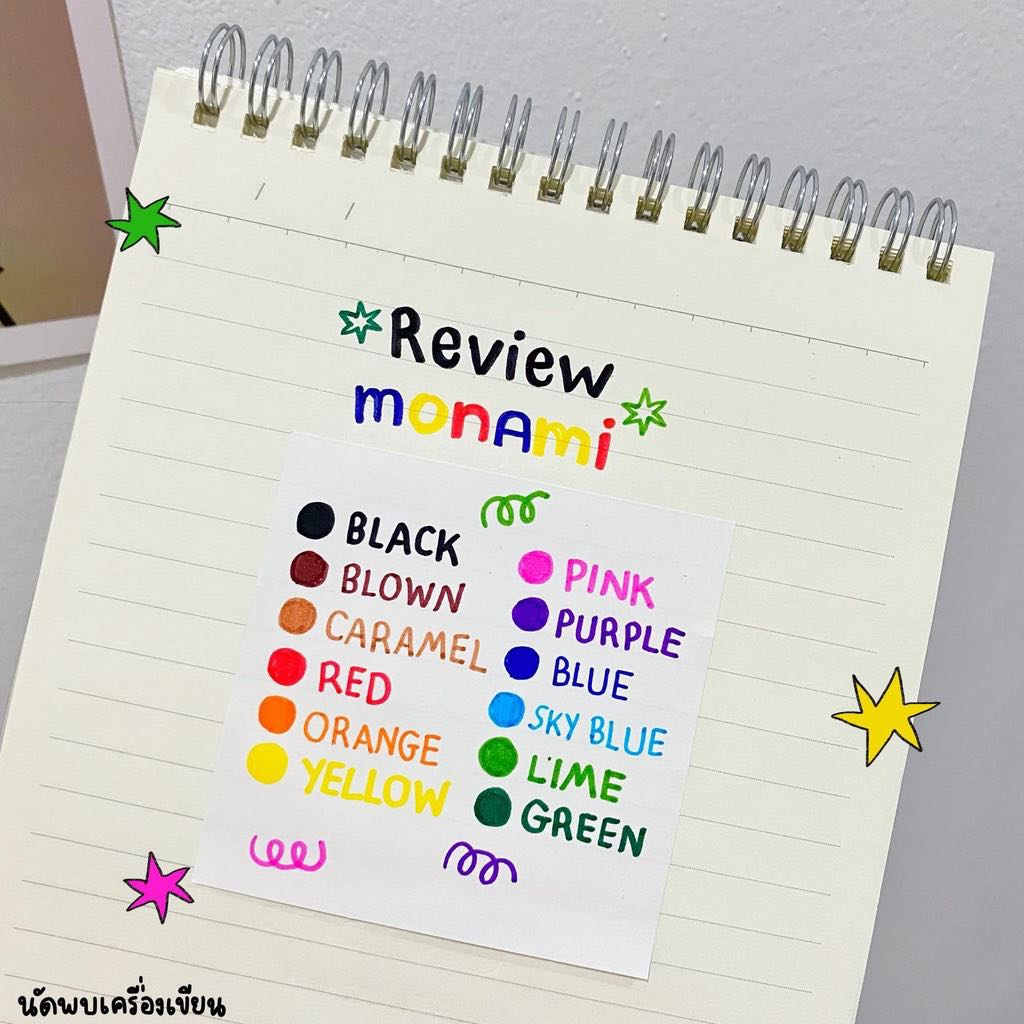 Review
monAmi
BLACK
BLOWN
CARAMEL
RED
ORANGE
YELLOW
PINK
PURPLE
BLUE
SKY BLUE
LIME
GREEN
นัดพบเครื่องเขียน